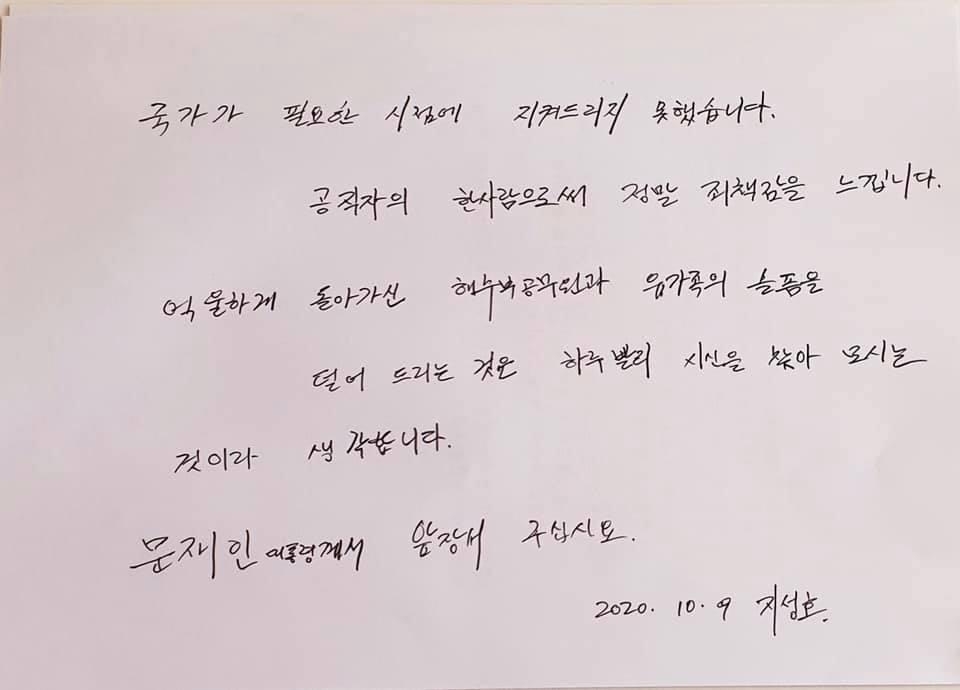 국가가 필요한 시점에 지켜드리지 못했습니다.
공직자의 한사람으로써 정말 죄책감을 느낍니다.
억울하게 돌아가신 해수부공무원과 유가족의 슬픔을
덜어 드리는 것은 하루빨리 시신을 찾아 모시는
것이라 생각합니다.
문재인 대통령께서 앞장서 주십시요.
2020. 10. 9 지성호.